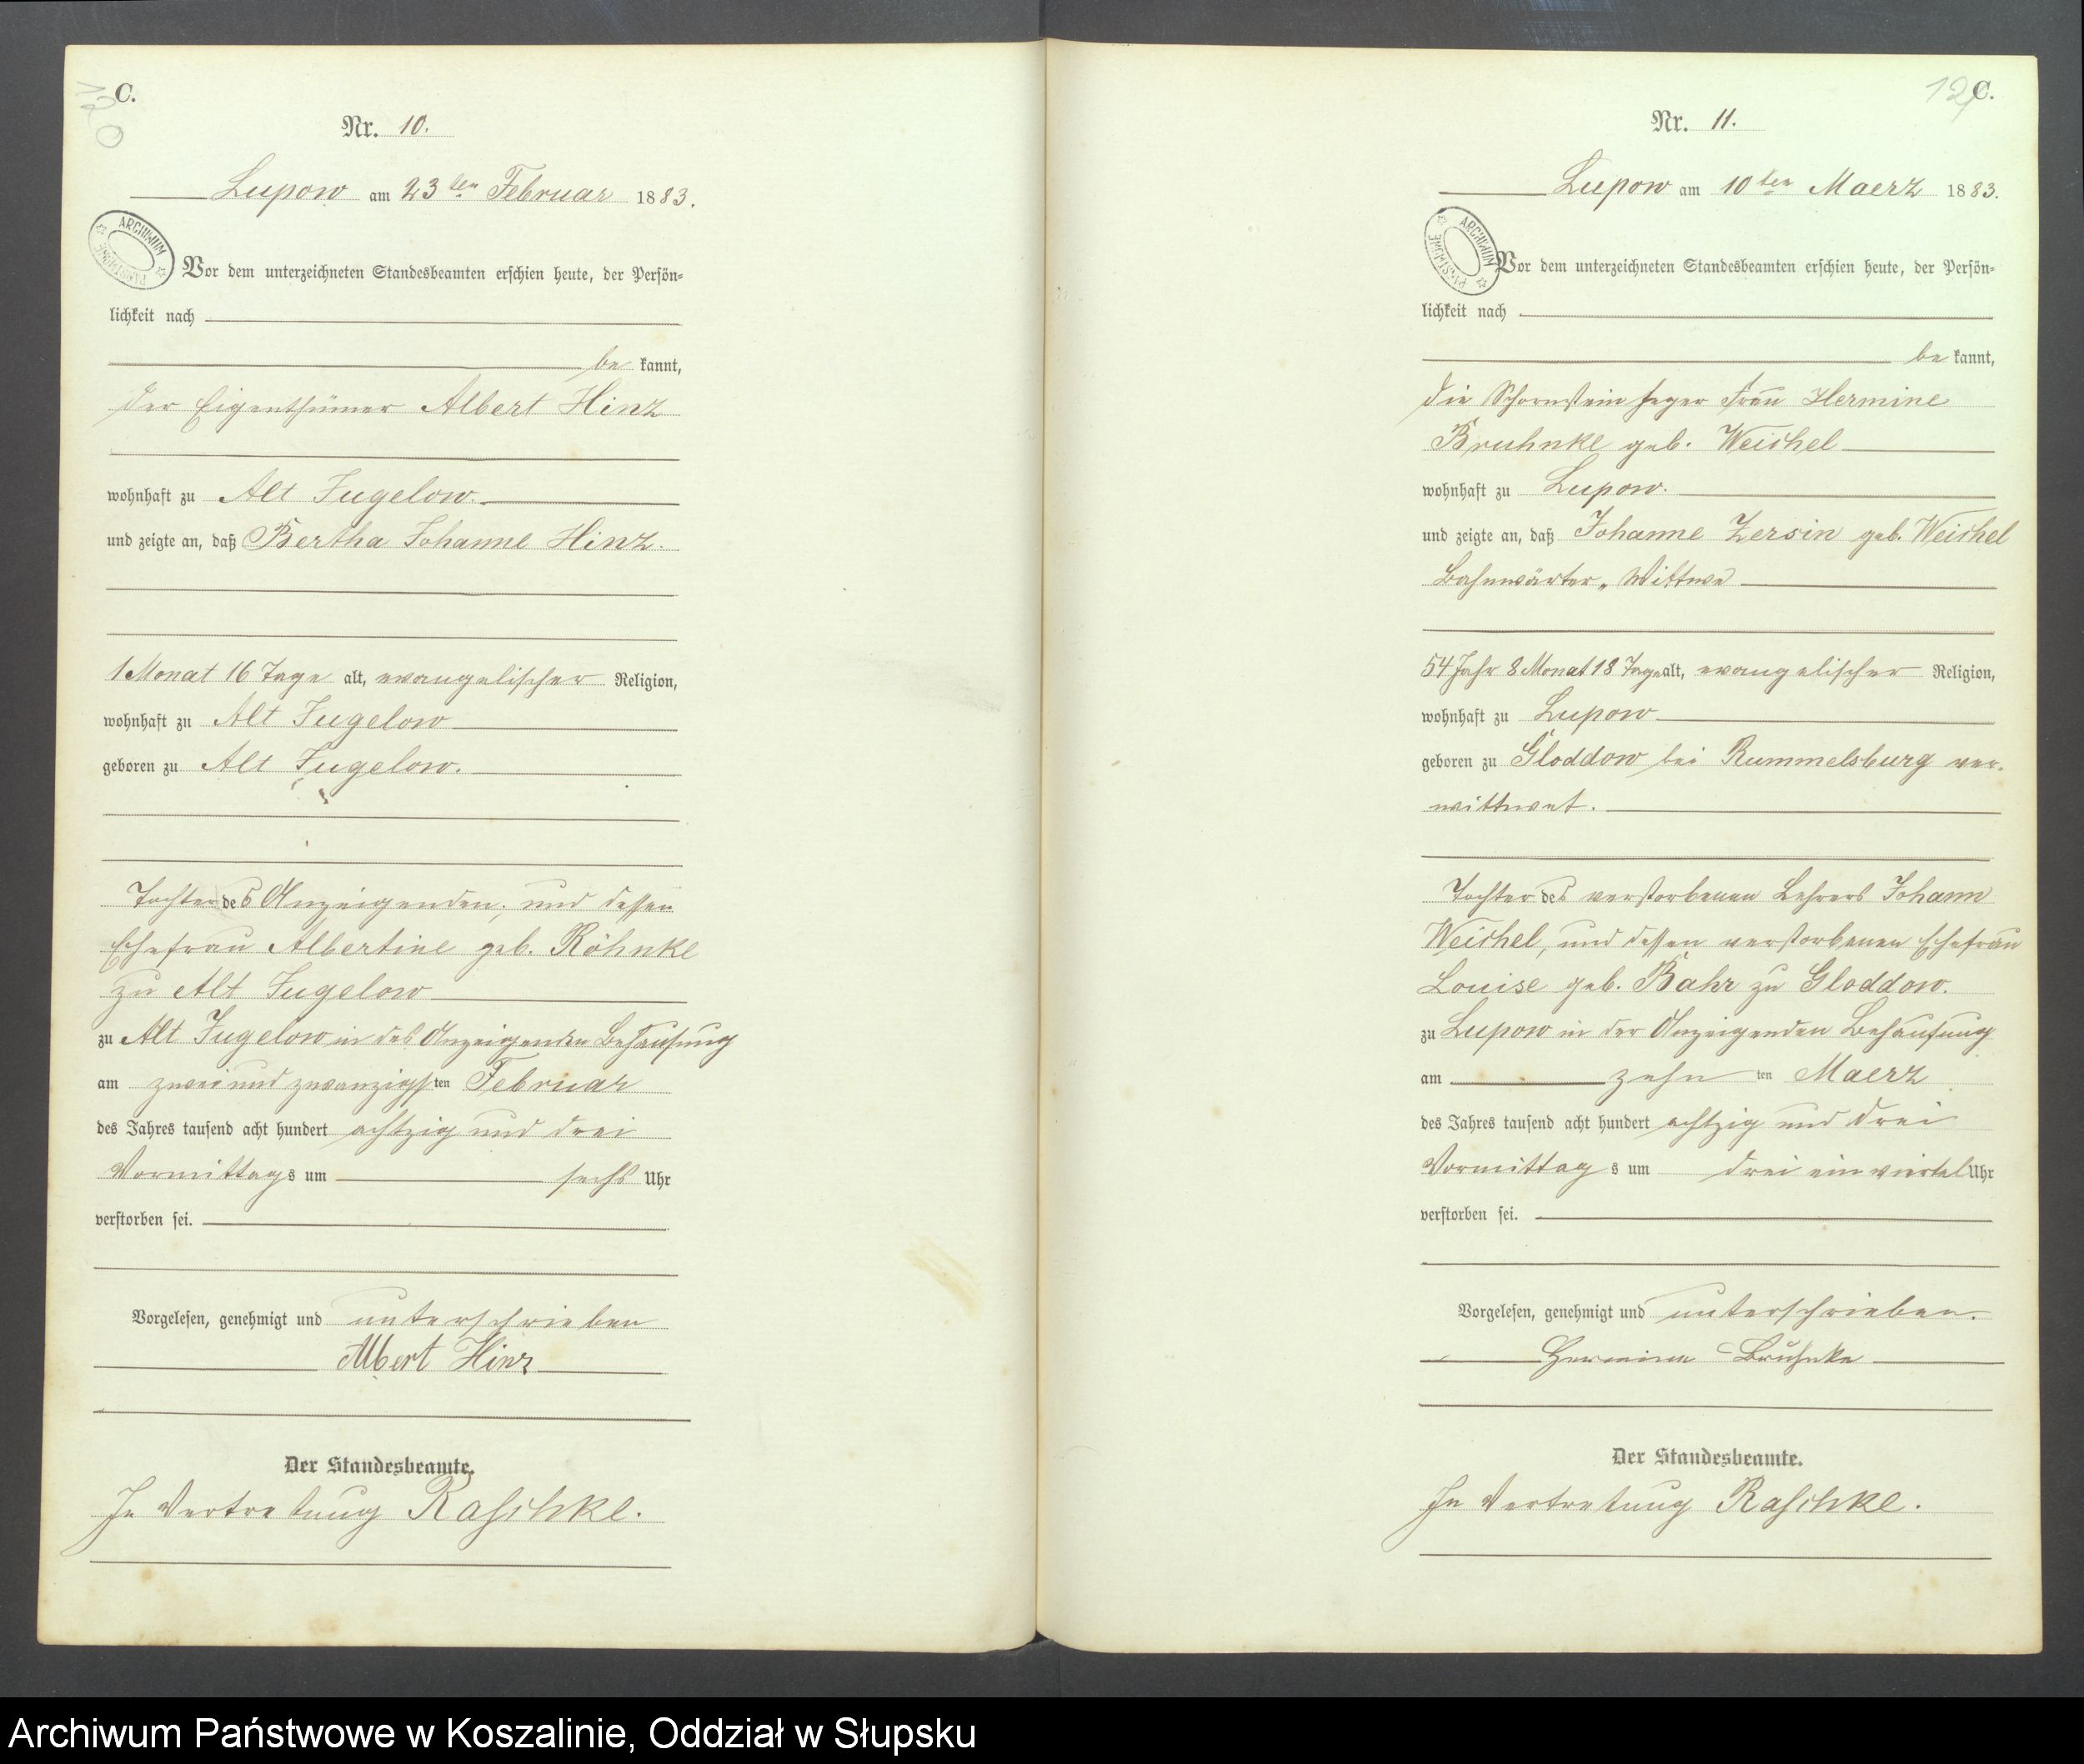 C.
120
Nr. 10.
Lupow am 23ten Februar 1883.
ARCHIWUM PAŃSTWOWE
Vor dem unterzeichneten Standesbeamten erschien heute, der Persön=
lichkeit nach
be kannt,
der Eigenthümer Albert Hinz
wohnhaft zu Alt Jugelow.
und zeigte an, daß Bertha Johanne Hinz.
1 Monat 16 Tage alt, evangelischer Religion,
wohnhaft zu Alt Jugelow
geboren zu Alt Jugelow.
Tochter des Anzeigenden, und dessen
Ehefrau Albertine geb. Röhnke
zu Alt Jugelow
zu Alt Jugelow in des Anzeigenden Behausung
am zwei und zwanzigsten Februar
des Jahres tausend acht hundert achtzig und drei
Vormittags um sechs Uhr
verstorben sei.
Vorgelesen, genehmigt und unterschrieben
Albert Hinz
Der Standesbeamte.
In Vertretung Raschke.
C.
Nr. 11.
Lupow am 10ten Maerz 1883.
ARCHIWUM PAŃSTWOWE
Vor dem unterzeichneten Standesbeamten erschien heute, der Persön=
lichkeit nach
be kannt,
die Schornsteinfeger Frau Hermine
Bruhnke geb. Weichel
wohnhaft zu Lupow.
und zeigte an, daß Johanne Zersin geb. Weichel
Bahnwärter „ Wittwe
54 Jahr 8 Monat 18 Tage alt, evangelischer Religion,
wohnhaft zu Lupow
geboren zu Gloddow bei Rummelsburg ver-
wittwet.
Tochter des verstorbenen Lehrers Johann
Weichel, und dessen verstorbenen Ehefrau
Louise geb. Bahr zu Gloddow.
zu Lupow in der Anzeigenden Behausung
am zehn ten Maerz
des Jahres tausend acht hundert achtzig und drei
Vormittag s um drei ein viertel Uhr
verstorben sei.
Vorgelesen, genehmigt und unterschrieben.
Hermine Bruhnke
Der Standesbeamte.
In Vertretung Raschke.
Archiwum Państwowe w Koszalinie, Oddział w Słupsku